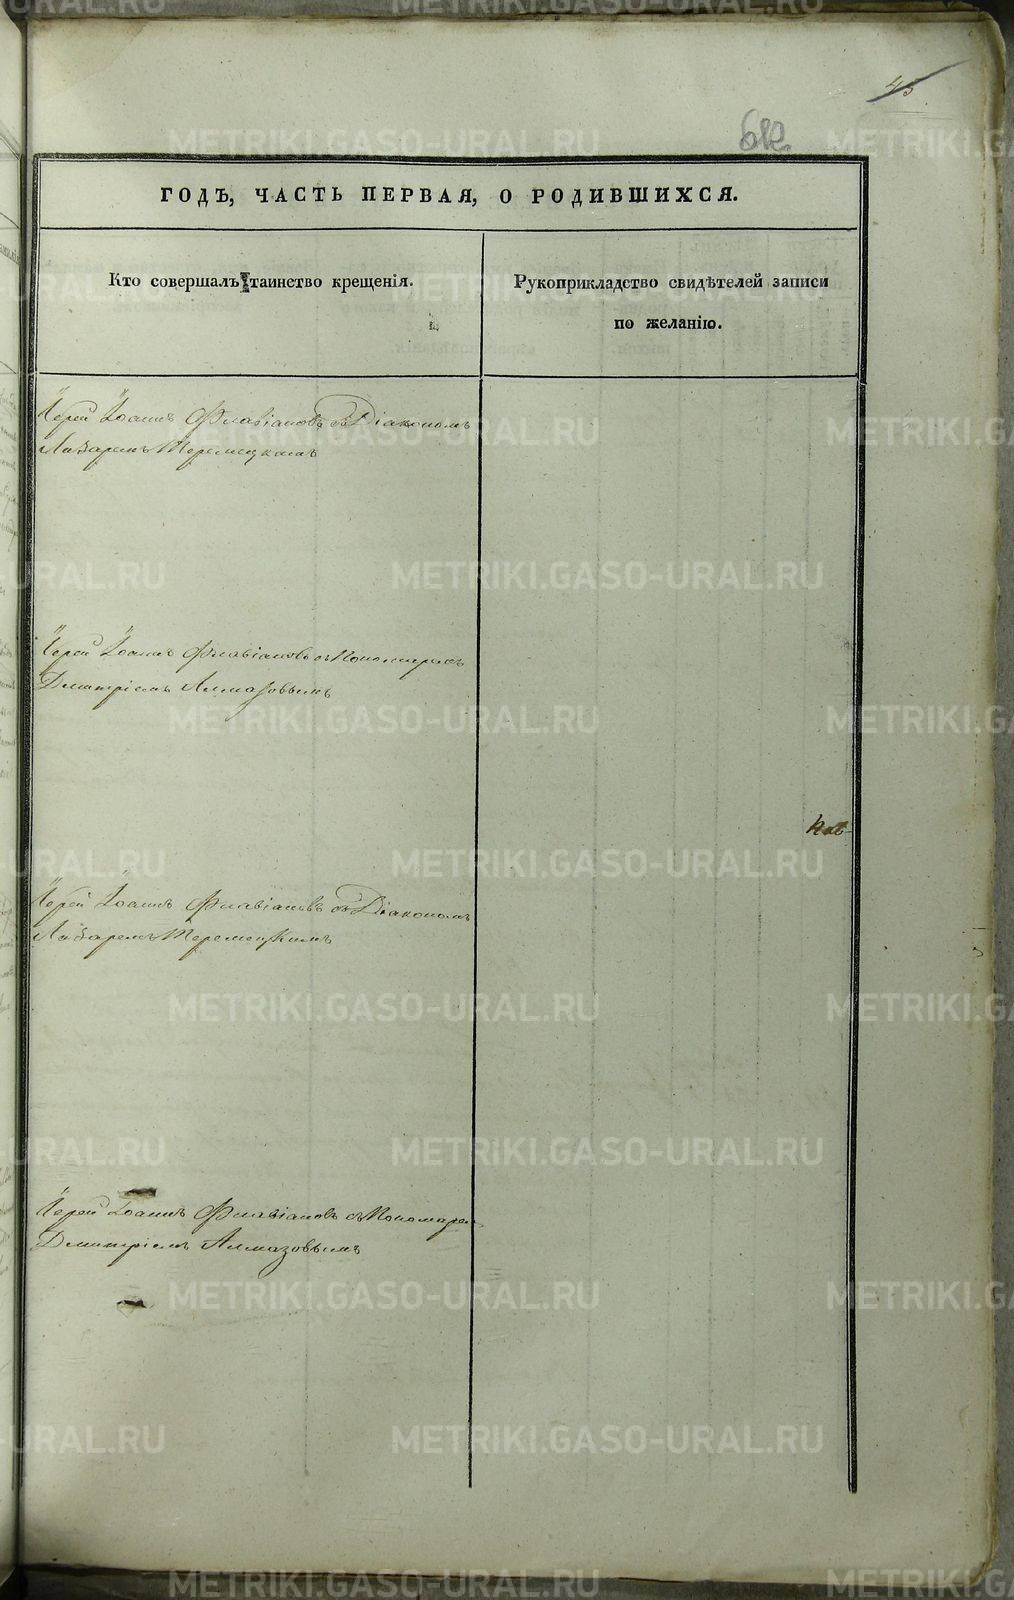 45
612
ГОДЪ, ЧАСТЬ ПЕРВАЯ, О РОДИВШИХСЯ.
Кто совершалъ таинство крещенія.
Рукоприкладство свидѣтелей записи
по желанію.
Іерей Іоаннъ Флавіановъ съ Діакономъ
Лазаремъ Теремецкимъ
Іерей Іоаннъ Флавіановъ съ Пономаремъ
Дмитріемъ Алмазовымъ
Іерей Іоаннъ Флавіановъ съ Діакономъ
Лазаремъ Теремецкимъ
Іерей Іоаннъ Флавіановъ съ Пономарем
Дмитріемъ Алмазовымъ
METRIKI.GASO-URAL.RU